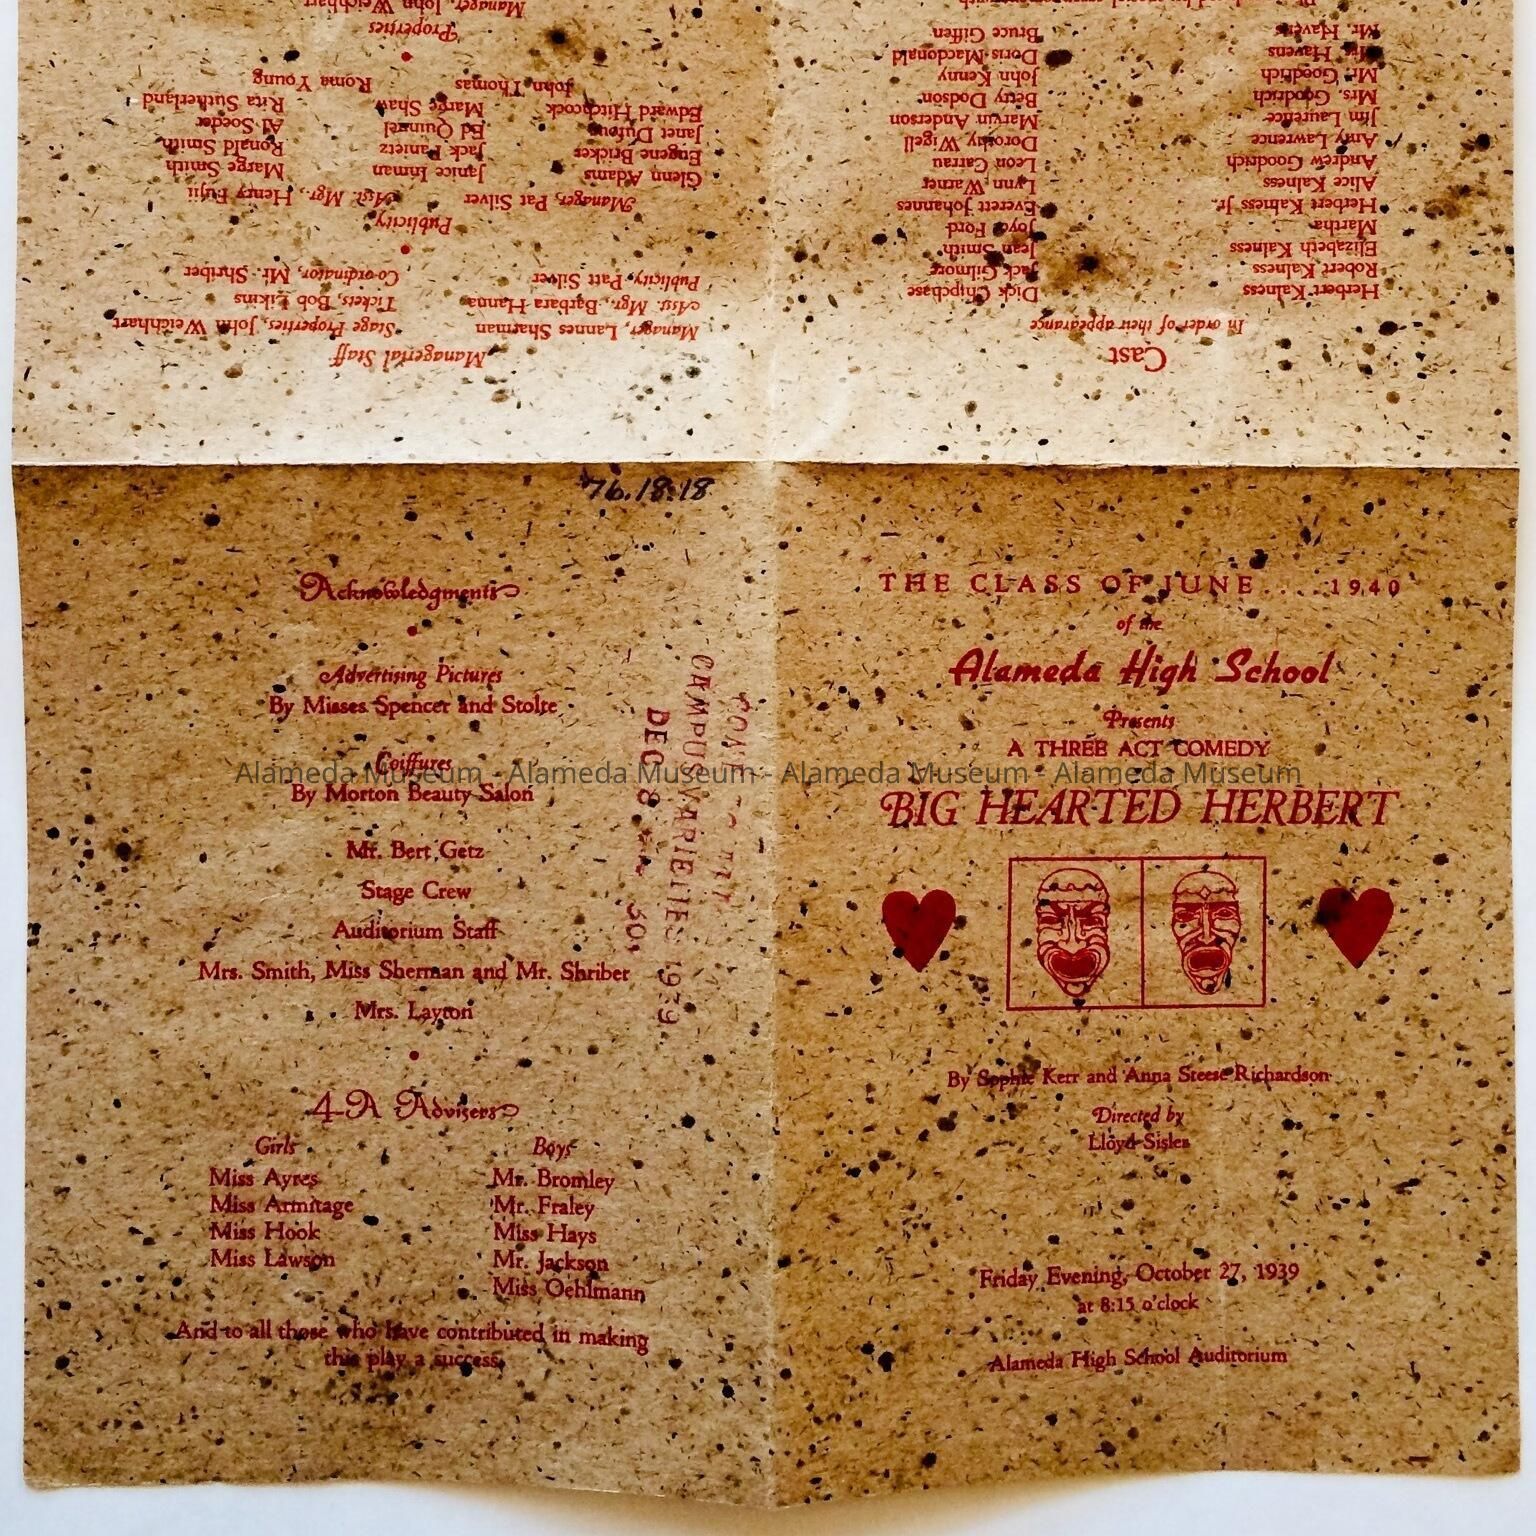 THE CLASS OF JUNE....1940
of the
Alameda High School
Presents
A THREE ACT COMEDY
BIG HEARTED HERBERT
By Sophie Kerr and Anna Steese Richardson
Directed by
Lloyd Sisler
Friday Evening, October 27, 1939
at 8:15 o'clock
Alameda High School Auditorium
76.18.18
Acknowledgments
Advertising Pictures
By Misses Spencer and Stolte
Coiffures
By Morton Beauty Salon
Mr. Bert Getz
Stage Crew
Auditorium Staff
Mrs. Smith, Miss Sherman and Mr. Shriber
Mrs. Layton
4-A Advisers
Girls Boys
Miss Ayres Mr. Bromley
Miss Armitage Mr. Fraley
Miss Hook Miss Hays
Miss Lawson Mr. Jackson
Miss Oehlmann
And to all those who have contributed in making
this play a success.
COME TO THE
CAMPUS VARIETIES 1939
DEC 8 30¢
Alameda Museum - Alameda Museum - Alameda Museum - Alameda Museum
Cast
In order of their appearance
Herbert Kalness Dick Chipchase
Robert Kalness Jack Gilmore
Elizabeth Kalness Jean Smith
Martha Joyce Ford
Herbert Kalness Jr. Everett Johannes
Alice Kalness Lynn Warner
Andrew Goodrich Leon Carrau
Amy Lawrence Dorothy Wigell
Jim Laurence Marvin Anderson
Mrs. Goodrich Betty Dodson
Mr. Goodrich John Kenny
Mrs. Havens Doris Macdonald
Mr. Havens Bruce Giffen
Managerial Staff
Manager, Lannes Sharman Stage Properties, John Weichhart
Asst. Mgr., Barbara Hanna Tickets, Bob Likins
Publicity, Patt Silver Co-ordinator, Mr. Shriber
Publicity
Manager, Pat Silver Asst. Mgr., Henry Fujii
Glenn Adams Janice Inman Marge Smith
Eugene Bricker Jack Panietz Ronald Smith
Janet Dufour Ed Quinnel Al Soeder
Edward Hitchcock Marge Shaw Rita Sutherland
John Thomas Roma Young
Properties
Manager, John Weichhart